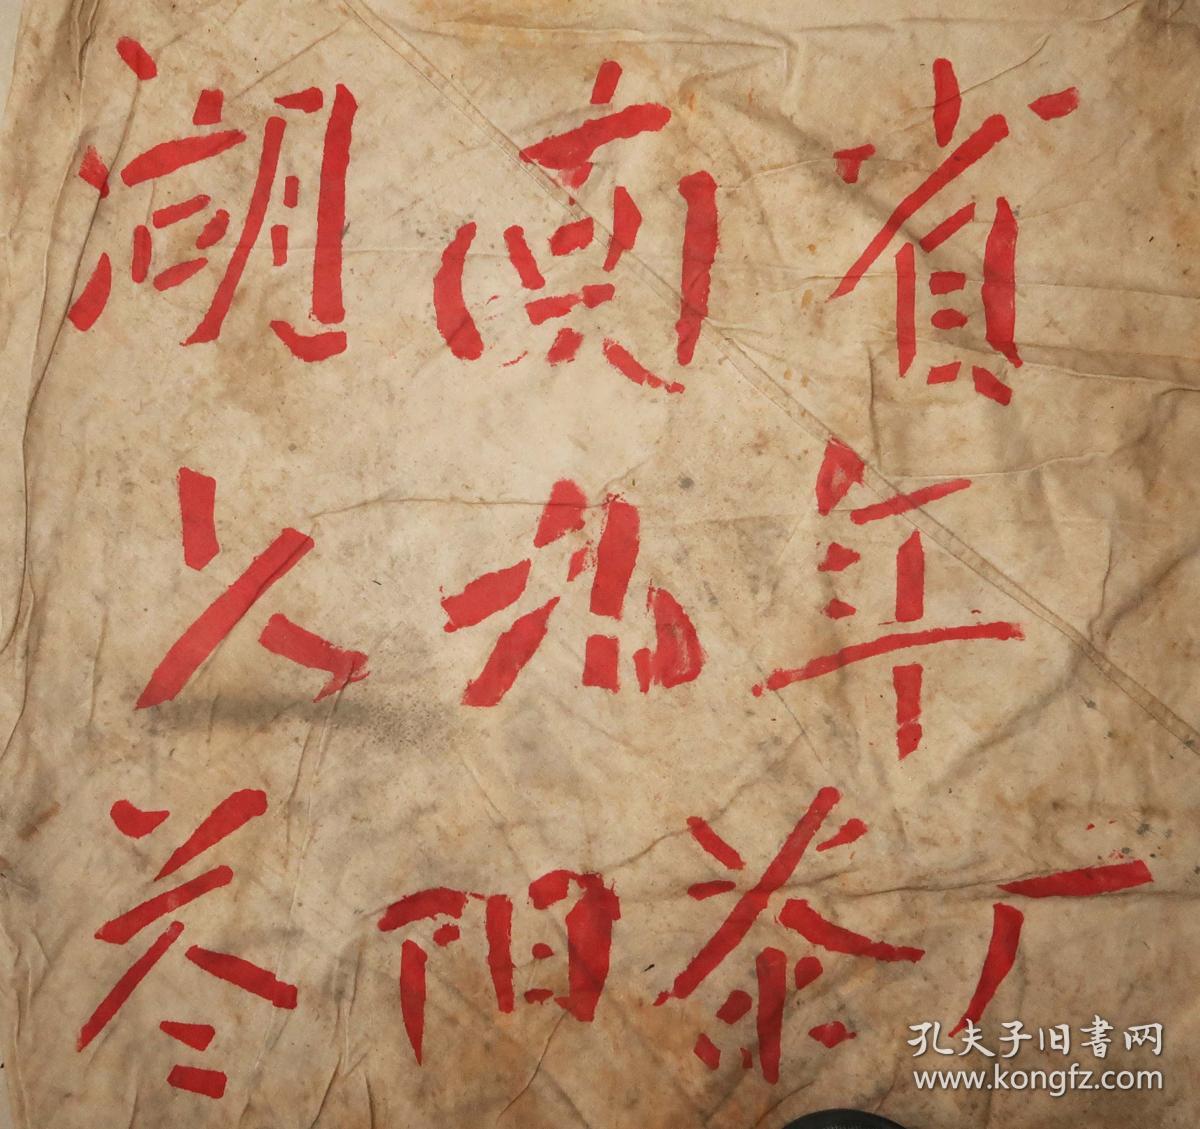 湖南省
九年
益阳茶厂
孔夫子旧書网
www.kongfz.com